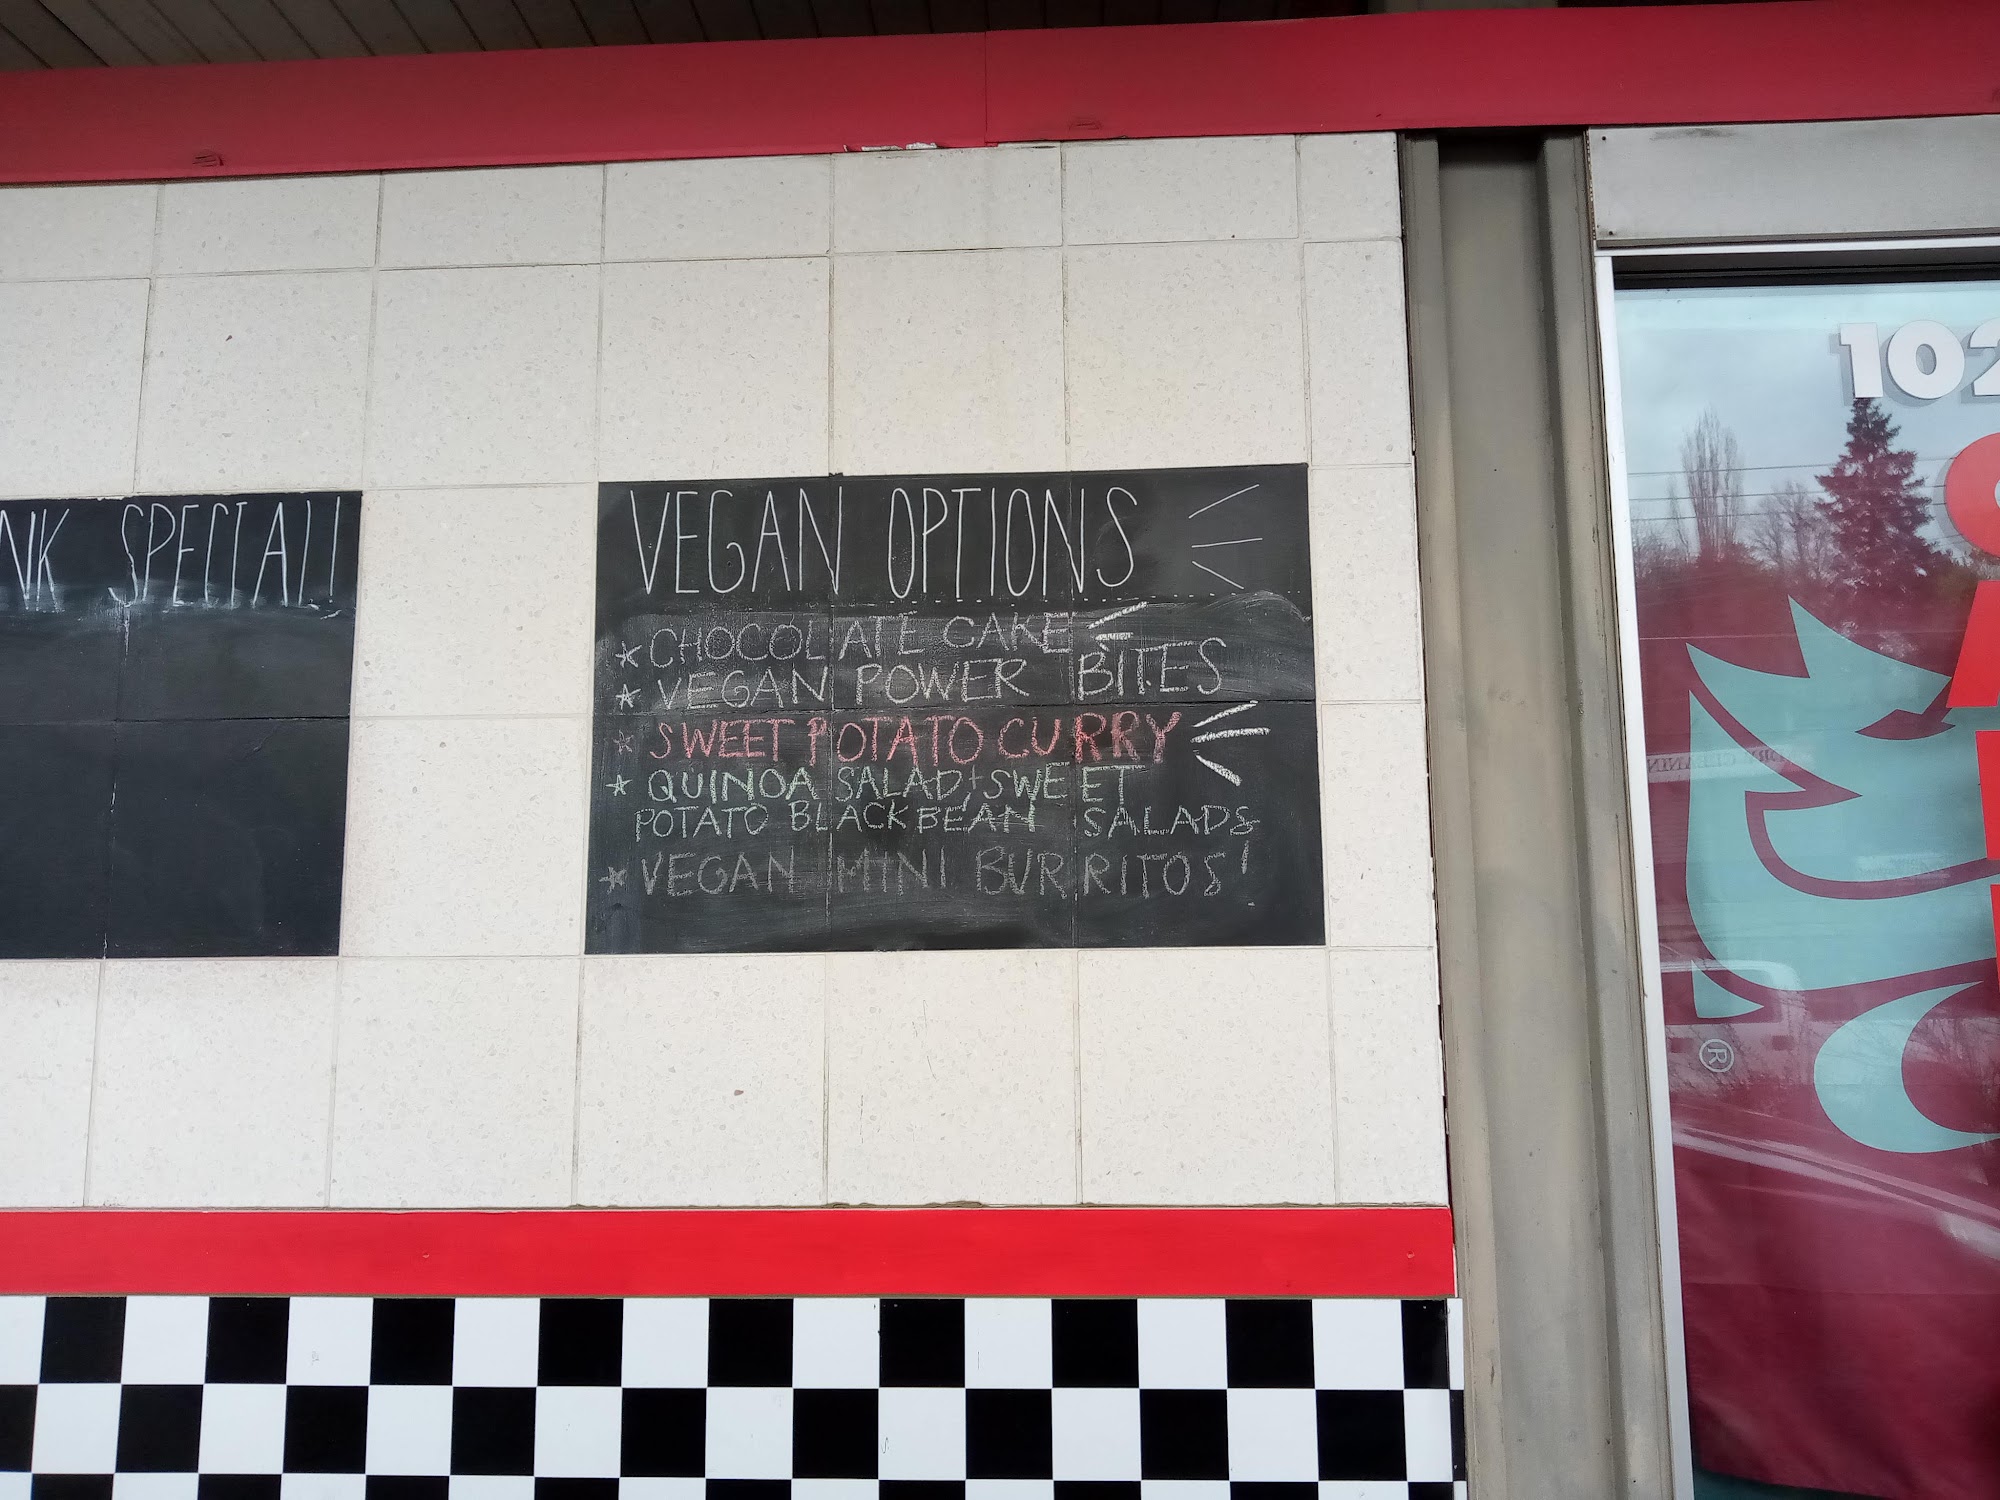 SPECIAL!
VEGAN OPTIONS
CHOCOLATE CAKE
VEGAN POWER BITES
SWEET POTATO CURRY
QUINOA SALAD + SWEET
POTATO BLACK BEAN SALADS
VEGAN MINI BURRITOS!
102
®